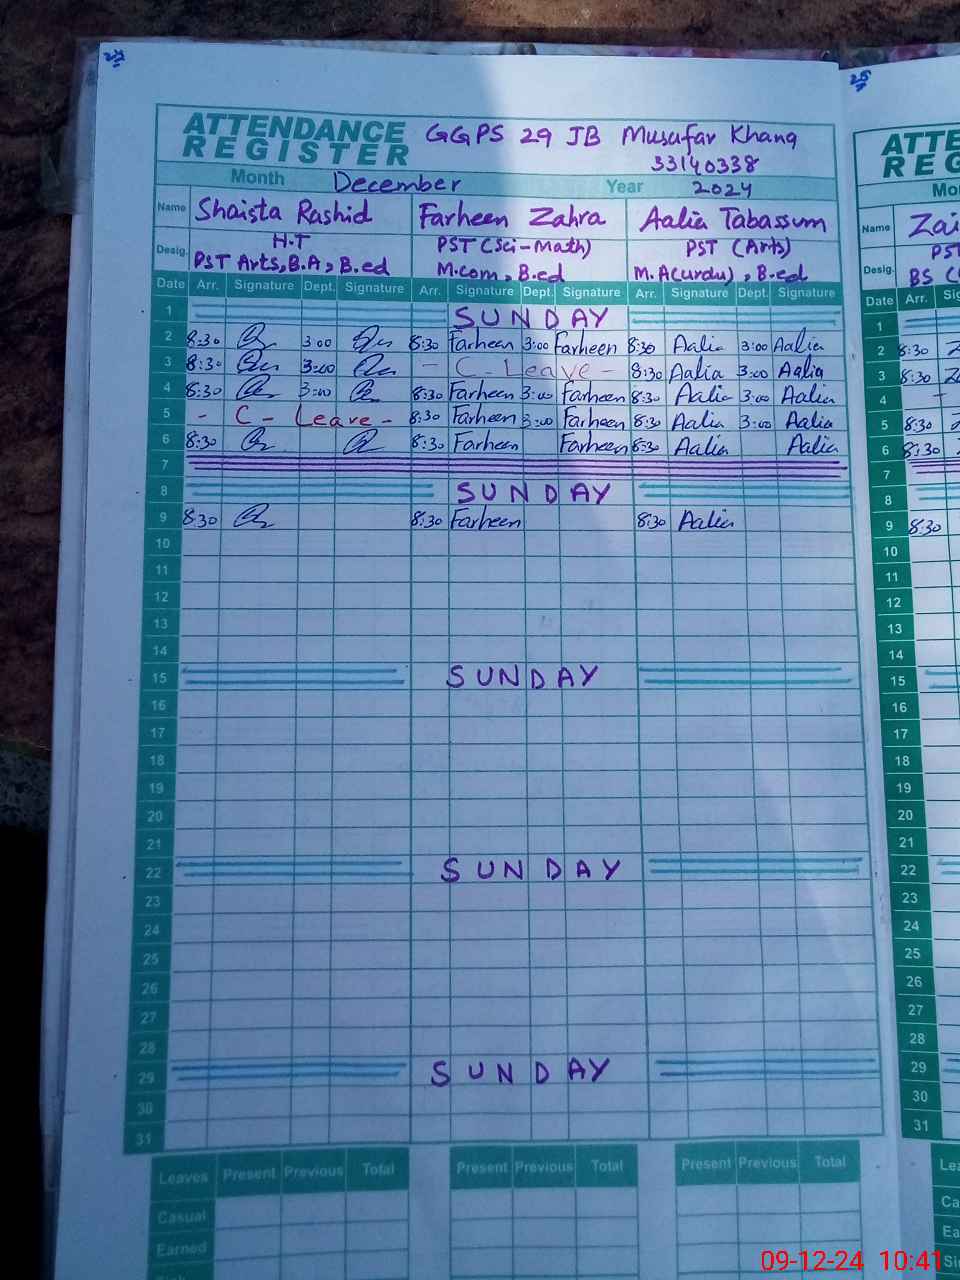 24
ATTENDANCE REGISTER GGPS 29 JB Musafar Khana
33140338
Month December Year 2024
Name Shaista Rashid Farheen Zahra Aalia Tabassum
Desig. H.T PST (Sci-Math) PST (Arts)
PST Arts, B.A, B.ed M.com, B.ed M.A(urdu), B.ed
Date Arr. Signature Dept. Signature Arr. Signature Dept. Signature Arr. Signature Dept. Signature
1 SUNDAY
2 8:30 3:00 8:30 Farheen 3:00 Farheen 8:30 Aalia 3:00 Aalia
3 8:30 3:00 - C-Leave - 8:30 Aalia 3:00 Aalia
4 8:30 3:00 8:30 Farheen 3:00 Farheen 8:30 Aalia 3:00 Aalia
5 - C - Leave - 8:30 Farheen 3:00 Farheen 8:30 Aalia 3:00 Aalia
6 8:30 8:30 Farheen Farheen 8:30 Aalia Aalia
7
8 SUNDAY
9 8:30 8:30 Farheen 8:30 Aalia
10
11
12
13
14
15 SUNDAY
16
17
18
19
20
21
22 SUNDAY
23
24
25
26
27
28
29 SUNDAY
30
31
Leaves Present Previous Total Present Previous Total Present Previous Total
Casual
Earned
25
Name
Desig. PST
BS
Date Arr.
1
2 8:30
3 8:30
4 -
5 8:30
6 8:30
7
8
9 8:30
10
11
12
13
14
15
16
17
18
19
20
21
22
23
24
25
26
27
28
29
30
31
09-12-24 10:41